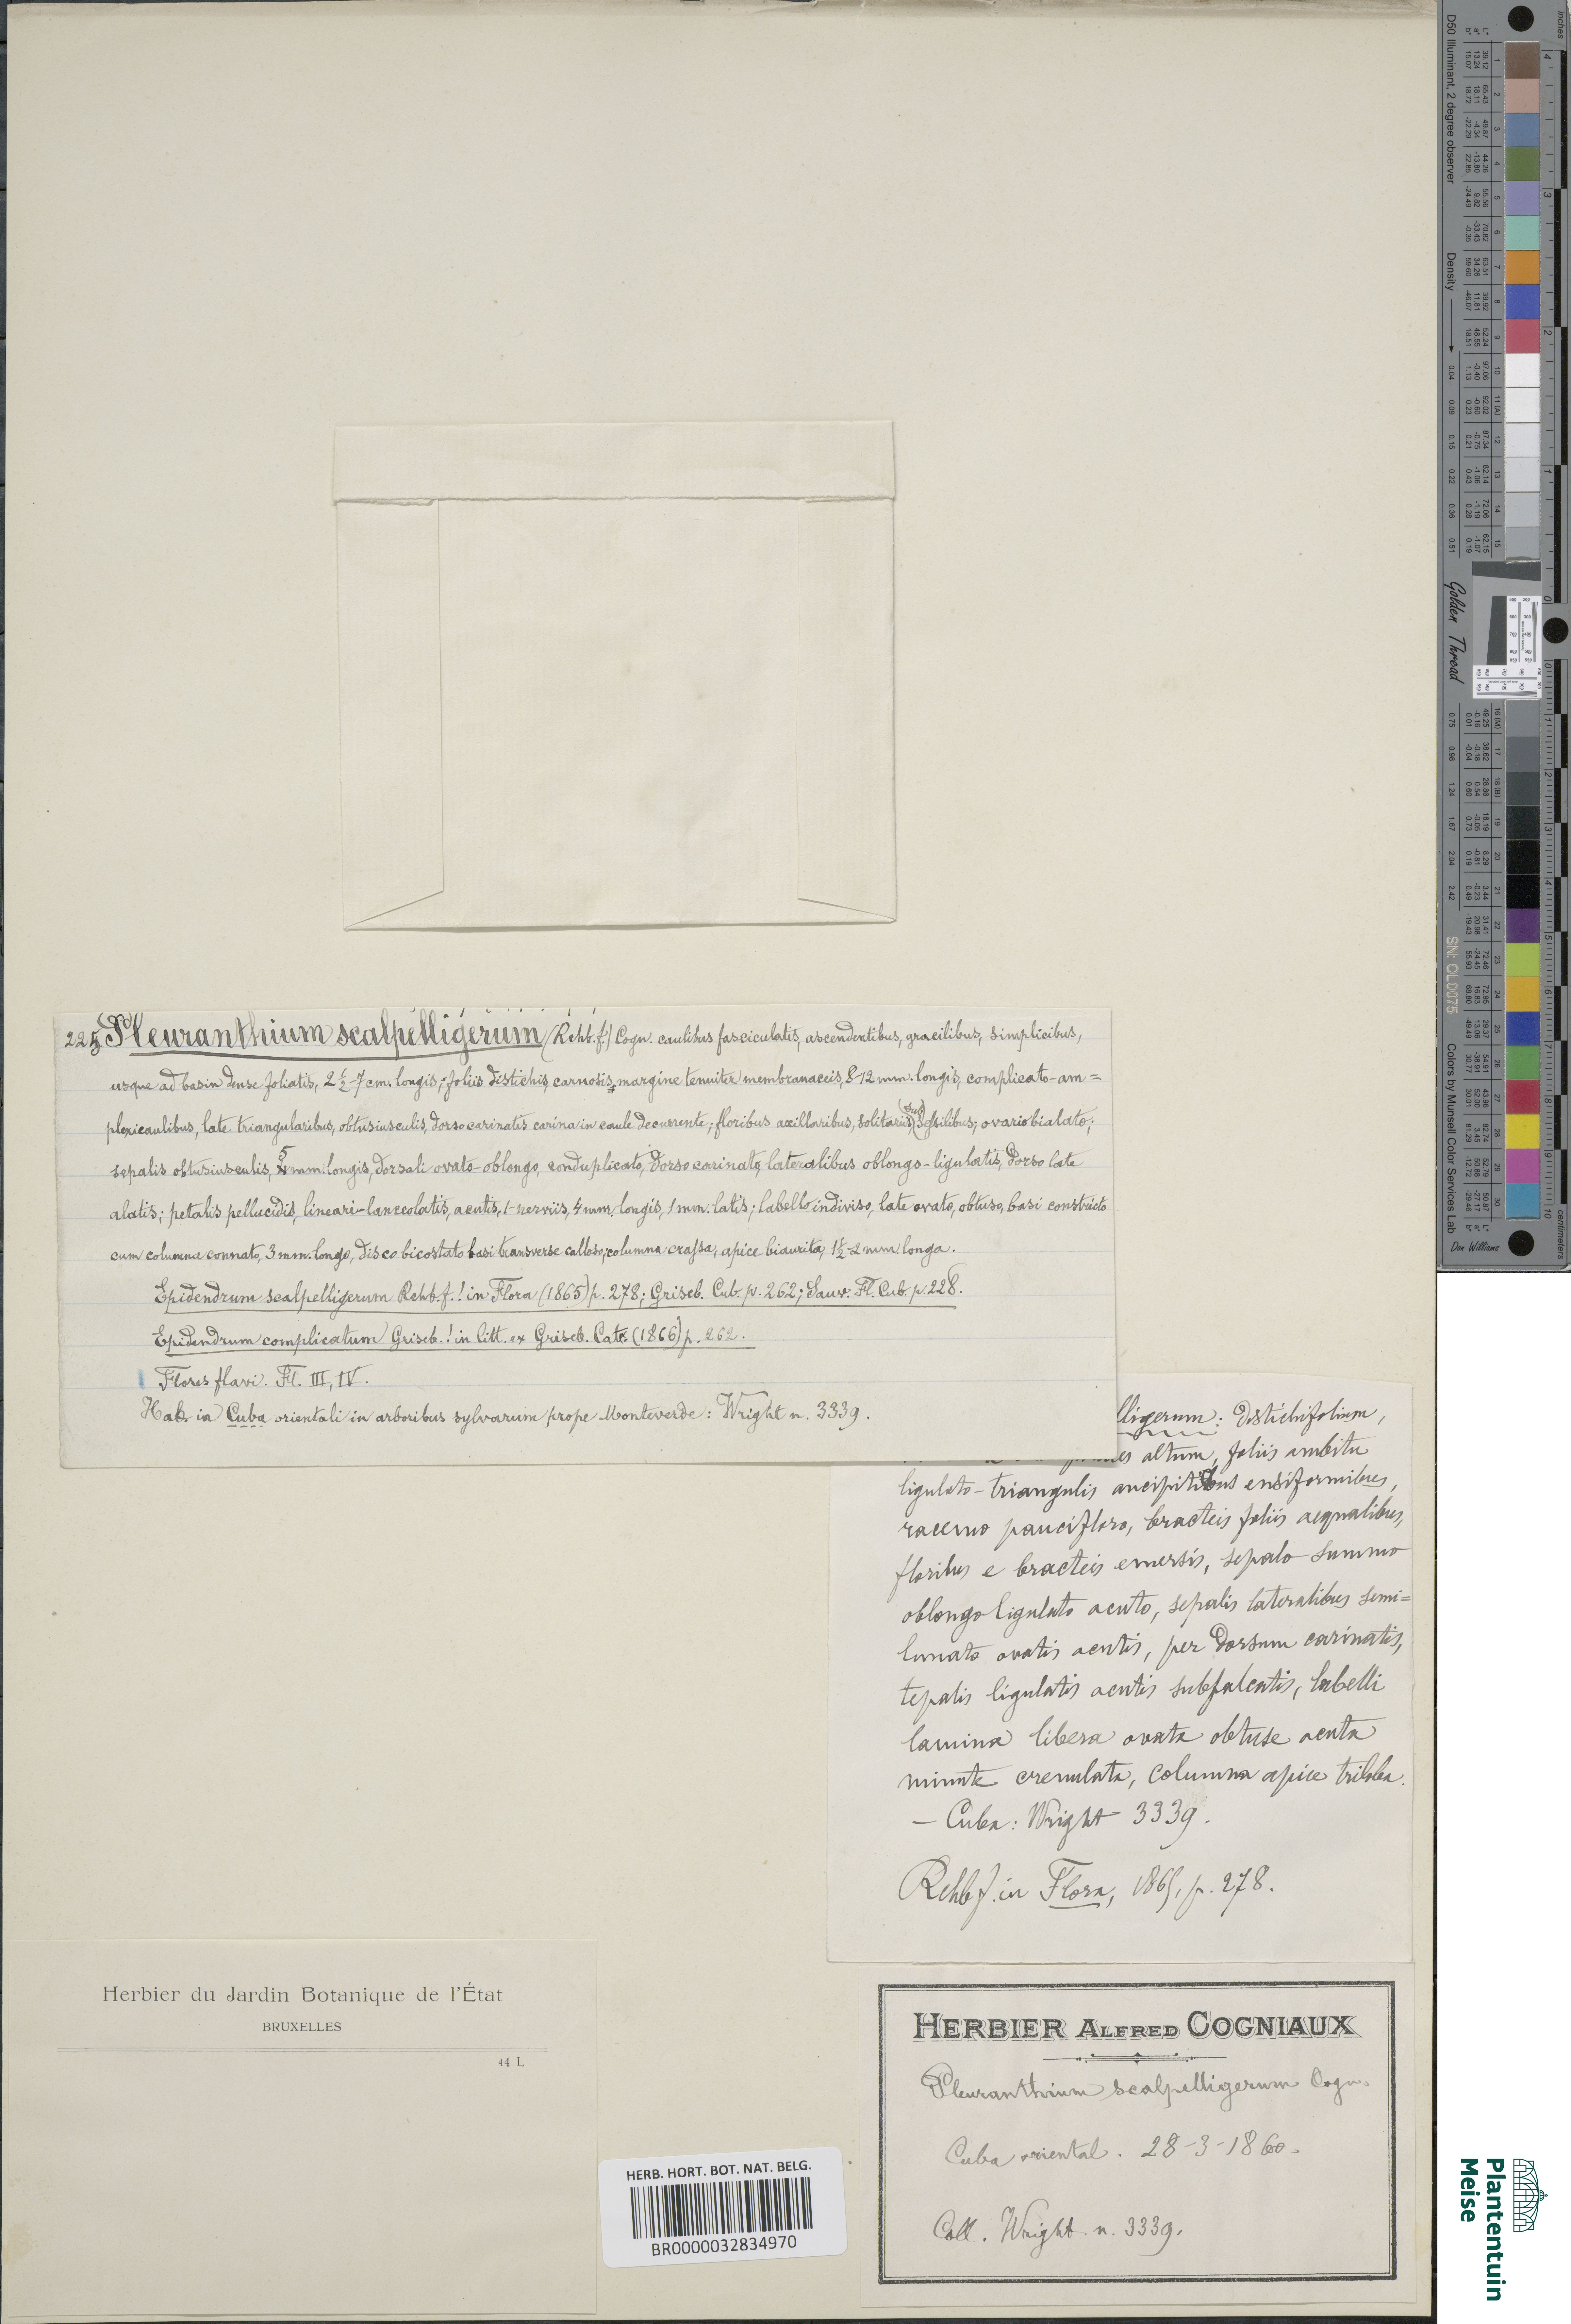 225 Pleuranthium scalpelligerum (Rchb. f.) Cogn. caulibus fasciculatis, ascendentibus, gracilibus, simplicibus,
usque ad basin dense foliatis, 2 1/2-7 cm. longis; foliis distichis, carnosis, margine tenuiter membranaceis, 8-12 mm. longis, complicato-am=
plexicaulibus, late triangularibus, obtusiusculis, dorso carinatis carina in caule decurrente; floribus axillaribus, solitariis sessilibus; ovario bialato;
sepalis obtusiusculis, 5 mm. longis, dorsali ovato-oblongo, conduplicato, dorso carinato, lateralibus oblongo-ligulatis, dorso late
alatis; petalis pellucidis, lineari-lanceolatis, acutis, 1-nerviis, 4 mm. longis, 1 mm. latis; labello indiviso, late ovato, obtuso, basi constricto
cum columna connato, 3 mm. longo, disco bicostato basi transverse calloso; columna crassa, apice biaurita, 1 1/2-2 mm longa.
Epidendrum scalpelligerum Rchb. f.! in Flora (1865) p. 278; Griseb. Cub. p. 262; Sauv. Fl. Cub. p. 228.
Epidendrum complicatum Griseb.! in litt. ex Griseb. Cat. (1866) p. 262.
Flores flavi. Fl. III, IV.
Hab. in Cuba orientali in arboribus sylvarum prope Monteverde: Wright n. 3339.
lligerum: distichifolium,
altum, foliis ambitu
ligulato-triangulis ancipitibus ensiformibus,
racemo paucifloro, bracteis foliis aequalibus,
floribus e bracteis emersis, sepalo summo
oblongo ligulato acuto, sepalis lateralibus semi=
lunato ovatis acutis, per dorsum carinatis,
tepalis ligulatis acutis subfalcatis, labelli
lamina libera ovata obtuse acuta
minute crenulata, columna apice triloba.
— Cuba: Wright 3339.
Rchb f. in Flora, 1865, p. 278.
Herbier du Jardin Botanique de l'État
BRUXELLES
44 L
HERBIER ALFRED COGNIAUX
Pleuranthium scalpelligerum Cogn.
Cuba oriental. 28-3-1860.
Coll. Wright. n. 3339.
HERB. HORT. BOT. NAT. BELG.
BR0000032834970
inches
centimeters
D50 Illuminant, 2 degree observer
Density
Golden Thread
SN: OL0075
Colors by Munsell Color Services Lab
Don Williams
Plantentuin
Meise